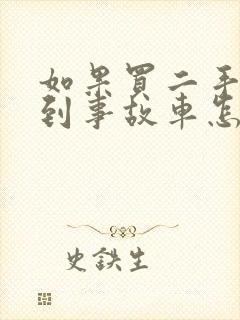 如果買二手
到事故車怎
史鉄生